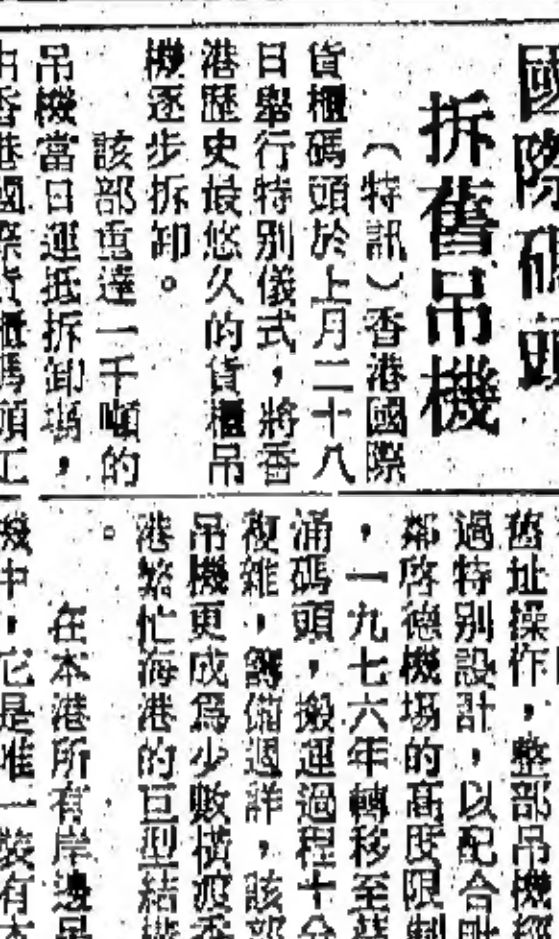 國際碼頭
拆舊吊機
（特訊）香港國際
貨櫃碼頭於上月二十八
日舉行特別儀式，將香
港歷史最悠久的貨櫃吊
機逐步拆卸。
該部重達一千噸的
吊機當日運抵拆卸場，
由香港國際貨櫃碼頭工
舊址操作，整部吊機經
過特別設計，以配合毗
鄰啓德機場的高度限制
，一九七六年轉移至葵
涌碼頭，搬運過程十分
複雜，籌備週詳，該部
吊機更成爲少數橫渡香
港繁忙海港的巨型結構
。
在本港所有岸邊吊
機中，它是唯一裝有本